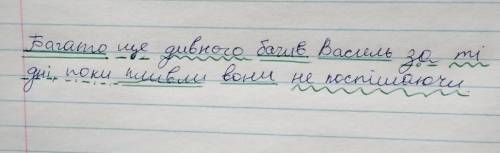 Багато ще дивного бачив Василь за ті
дні, поки пливли вони не поспішаючи.